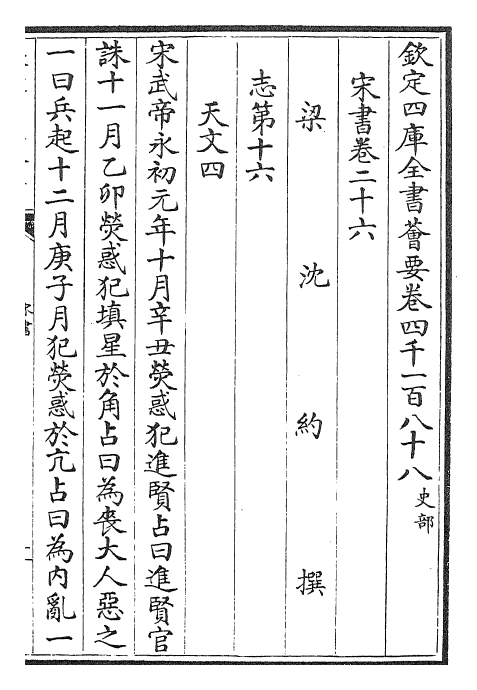 欽定四庫全書薈要卷四千一百八十八史部
宋書卷二十六
梁沈約撰
志第十六
天文四
宋武帝永初元年十月辛丑熒惑犯進賢占曰進賢官
誅十一月乙卯熒惑犯填星於角占曰為喪大人惡之
一曰兵起十二月庚子月犯熒惑於亢占曰為内亂一